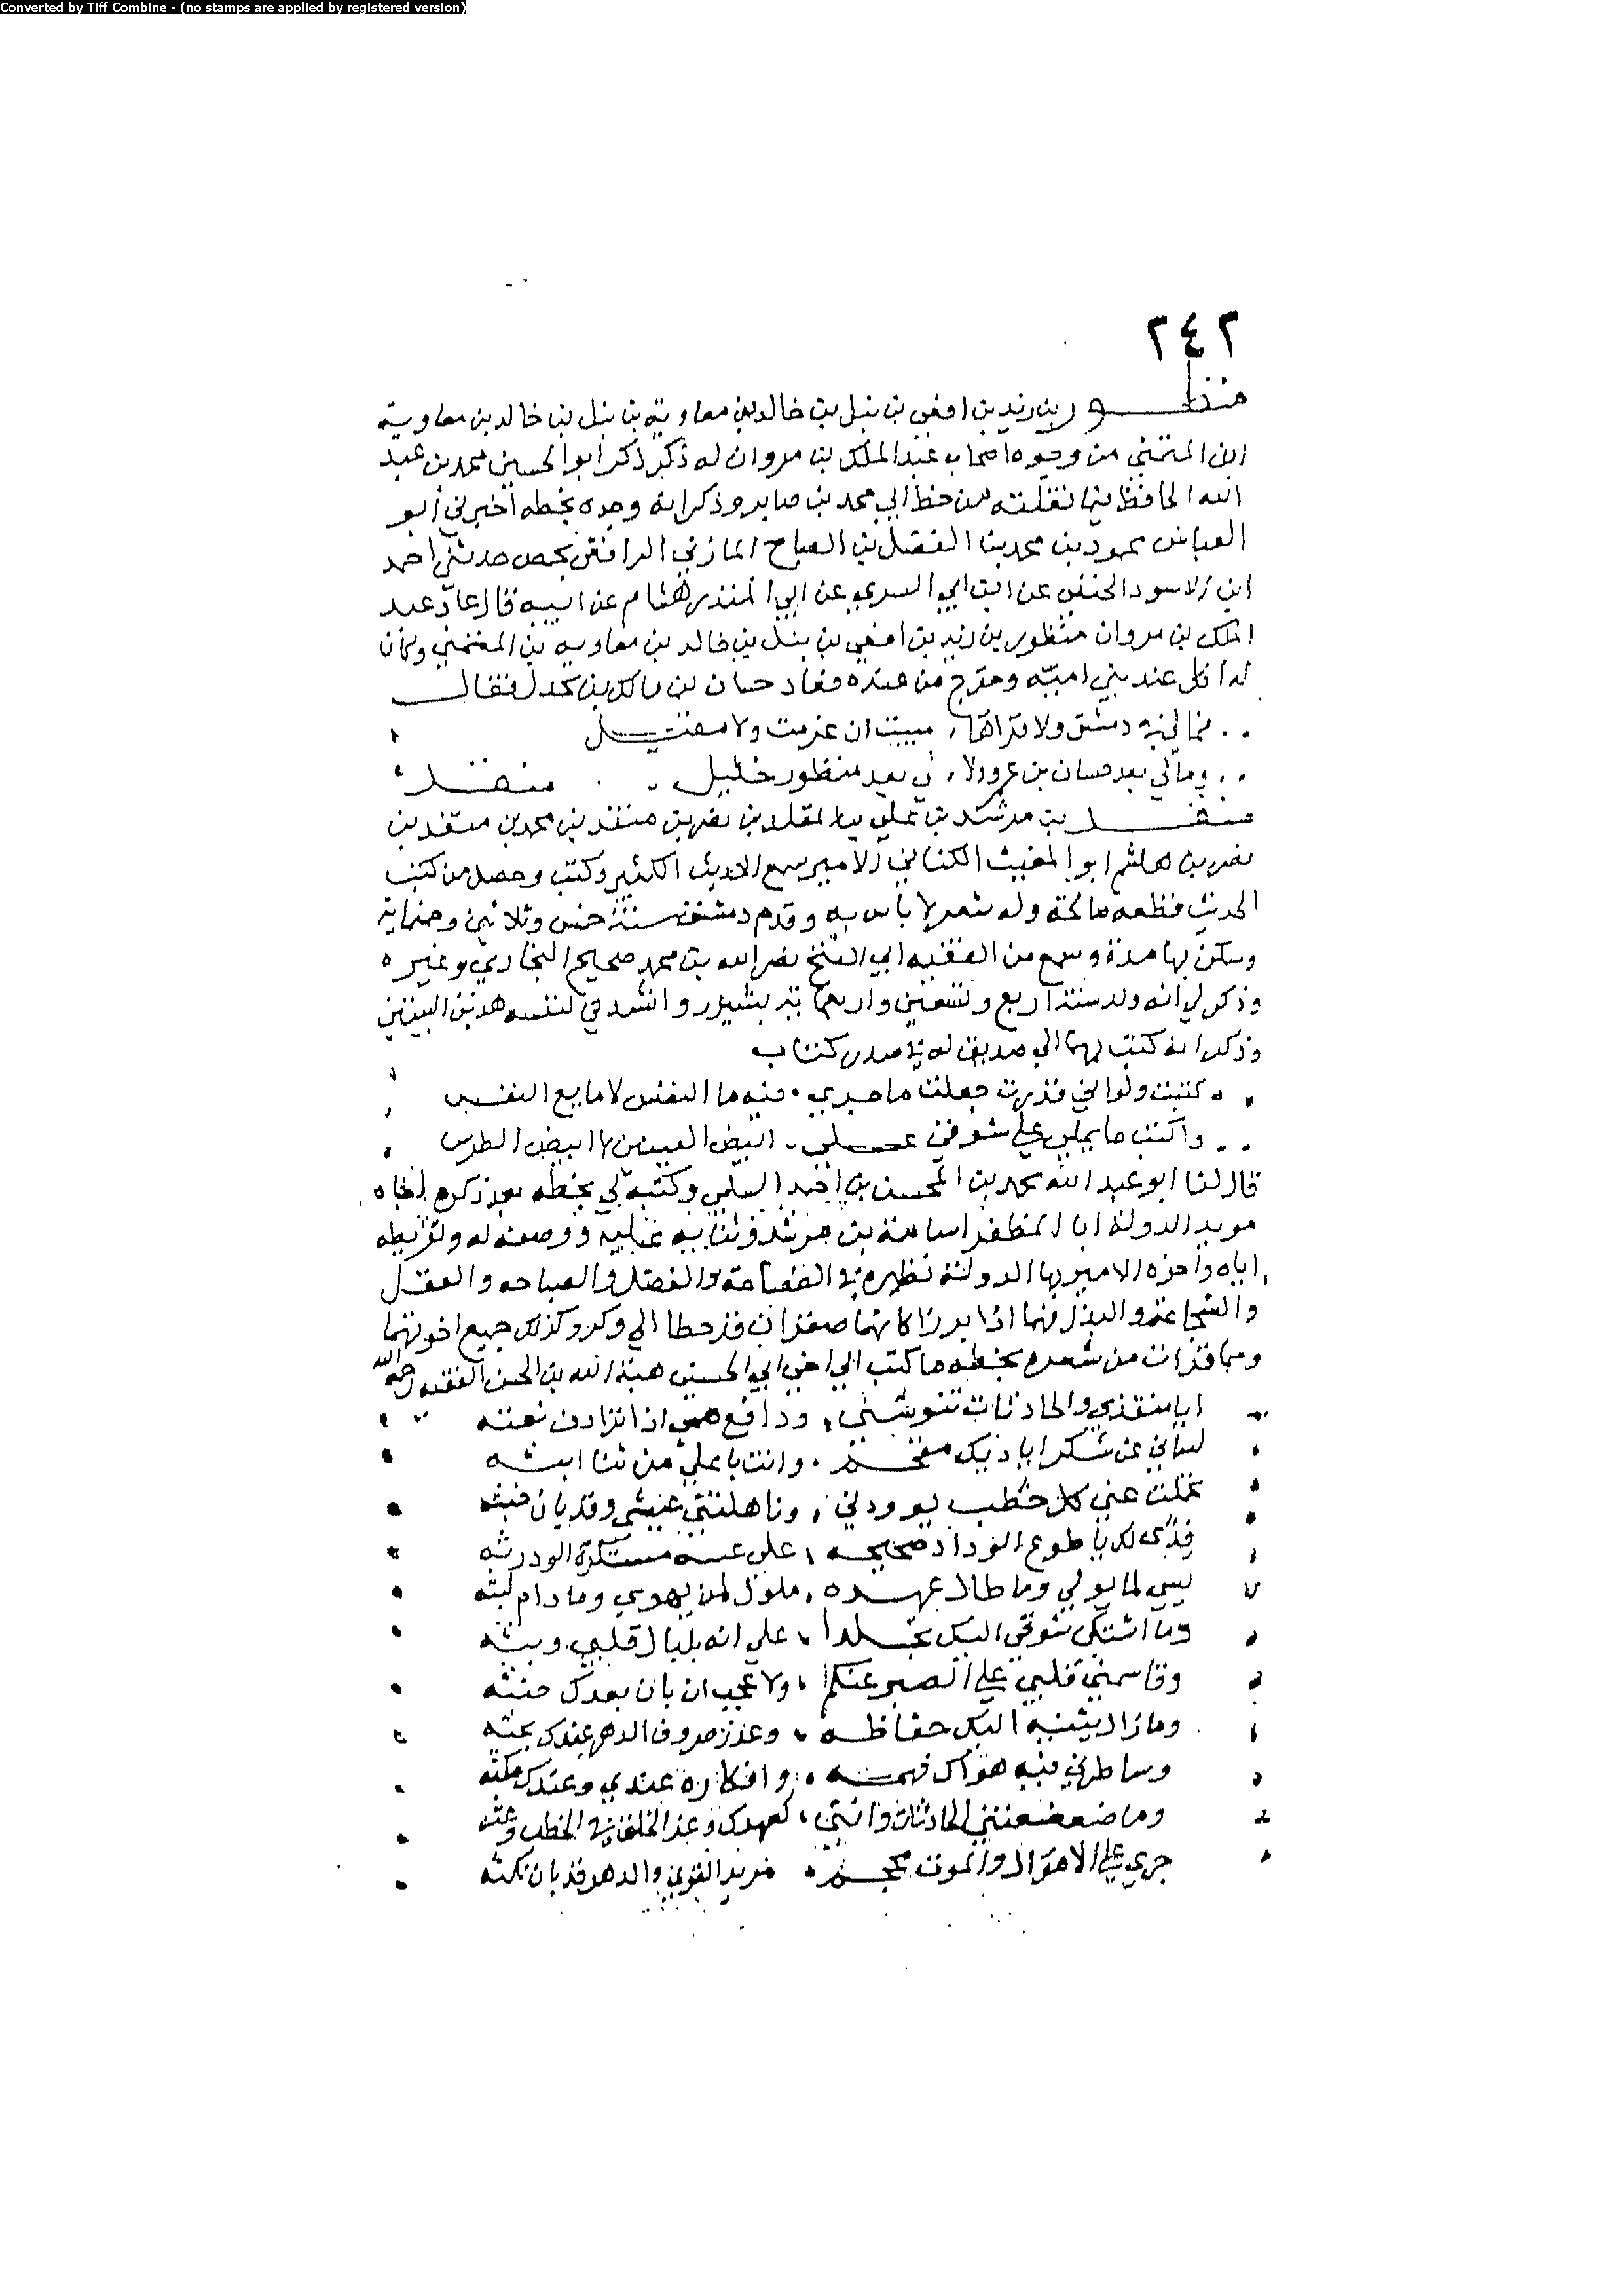 Converted by Tiff Combine - (no stamps are applied by registered version)
٢٤٢
منظور بن زيد بن افعى بن نبل بن خالد بن معاوية بن نبل بن خالد بن معاوية
ابن المتمني من وجوه اصحاب عبد الملك بن مروان له ذكر ذكر ابو الحسين محمد بن عبد
الله الحافظ فيما نقلته من خط ابي محمد بن صابر وذكر انه وجده بخطه أخبرني ابو
العباس محمود بن محمد بن الفضل بن الصباح المازني الرافقي بحمص حدثني احمد
ابن الاسود الحنفي عن ابن ابي السري عن ابي المنذر هشام عن ابيه قال عاد عبد
الملك بن مروان منظور بن زيد بن افعى بن نبل بن خالد بن معاوية بن وكان
عند بني امية وخرج من عنده فعاد حسان بن مالك بن بحدل فقال
فمالي في دمشق ولا قراها مبيت ان عزمت ولا مقيل
ومالي بعد حسان بن عمرو ولا لي بعد منظور خليل منقذ
منقذ بن مرشد بن علي بن المقلد بن نصر بن منقذ بن محمد بن منقذ بن
نصر بن هاشم ابو المغيث الكناني الامير سمع الحديث الكثير وكتب وحصل من كتب
الحديث قطعة صالحة وله شعر لا بأس به وقدم دمشق سنة خمس وثلاثين وخمماية
وسكن بها مدة وسمع من الفقيه ابي الفتح نصر الله بن محمد صحيح البخاري وغيره
وذكر لي انه ولد سنة اربع وتسعين واربعماية بشيزر وانشدني لنفسه هذين البيتين
وذكر انه كتب بهما الى صديق له في صدر كتاب
كتبت ولو اني قدرت جعلت ما حبري فيه ما النفس لا مايع النفس
واكتب ما يملي علي شوقي ابيض العينين لا ابيض الطرس
قال لنا ابو عبد الله محمد بن المحسن بن احمد السلمي وكتبه لي بخطه بعد ذكره اخاه
مويد الدولة ابا المظفر اسامة بن مرشد وثنايه عليه ووصفه له وتقريظه
اياه واخوه الامير بها الدولة نظيره في الفصاحة والفضل والصباحه والعقل
والشجاعة والبذل فهما اذا برزا كانهما صقران قد حطا الى وكر وكذلك جميع اخوتهما
ومما قرات من شعره بخطه ما كتب الى اخي ابي الحسين هبة الله بن الحسن الفقيه رحمه الله
ايا منقذي والحادثات تنوشني ودافع همي اذا ترادف
لساني عن شكر اياديك مفحم وانت يا علي من ثنا ابثه
تحملت عني كل خطب يوودني
فدى لك يا طوع الوداد صحيحه على
لما يولي وما طال عهده ملول لمن يهوى وما دام لبثه
وما اشتكى شوقي اليك تجلدا على انه بلبال قلبي وبثه
وقاسمني قلبي على الصبر عنكم ولا عجب ان بان بعدك حنثه
وما زال يثنيه اليك حفاظه وعذر صروف الدهر عندك بحثه
وساطرني فيه هواك وافكاره عندي وعندك مكثه
وما ضعضعتني الحادثات وانني كعهدك
جري على الاهوال والموت محجم مرير القوى والدهر قد بان نكثه